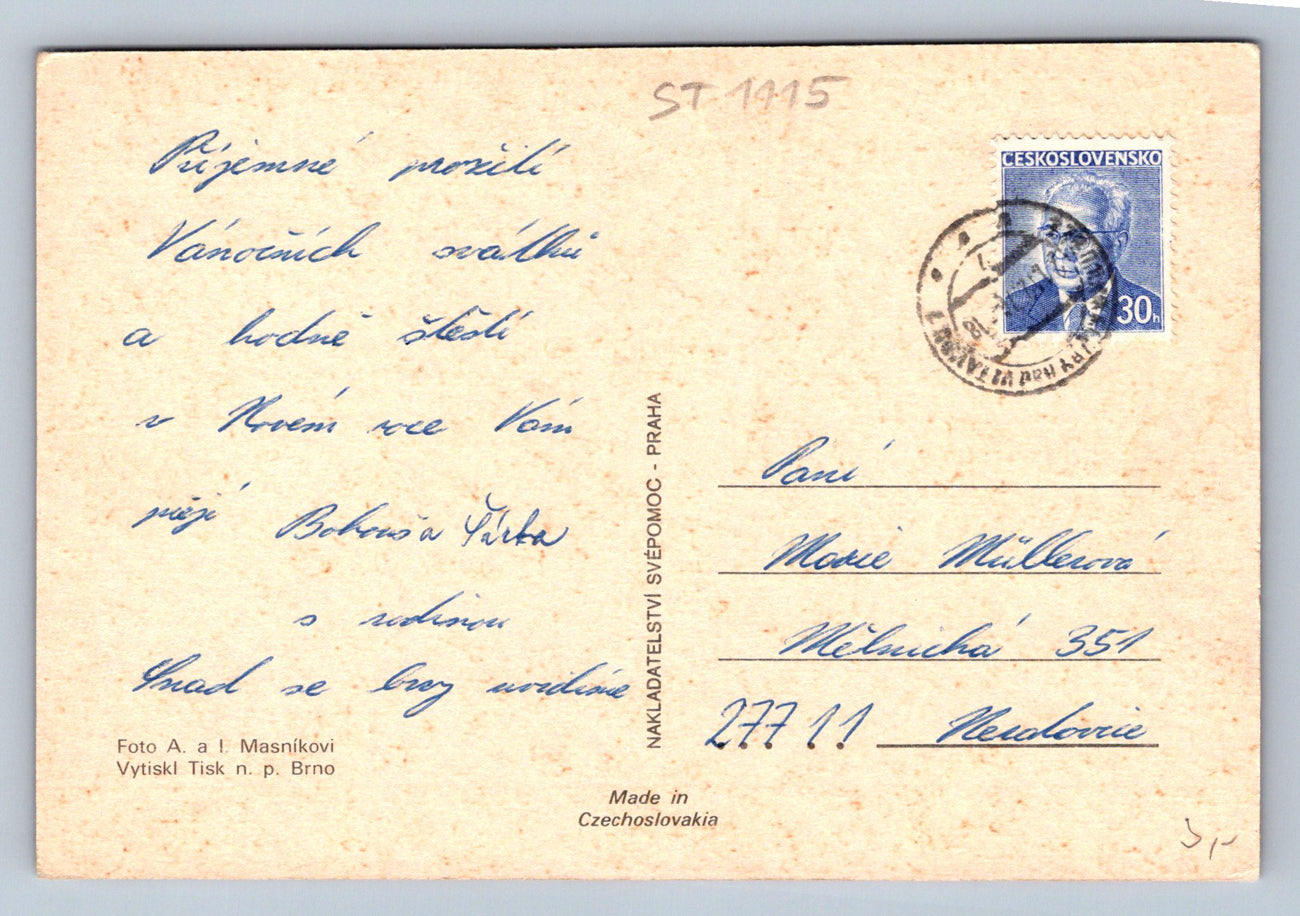 ST 1115
Příjemné prožití
Vánočních svátků
a hodně štěstí
v Novém roce Vám
přejí Bohouš a Šárka
s rodinou
Snad se brzy uvidíme
Foto A. a I. Masníkovi
Vytiskl Tisk n. p. Brno
NAKLADATELSTVÍ SVÉPOMOC - PRAHA
Made in
Czechoslovakia
ČESKOSLOVENSKO
30h
KRALUPY nad VLTAVOU 1
Paní
Marie Müllerová
Mělnická 351
277 11 Neratovice